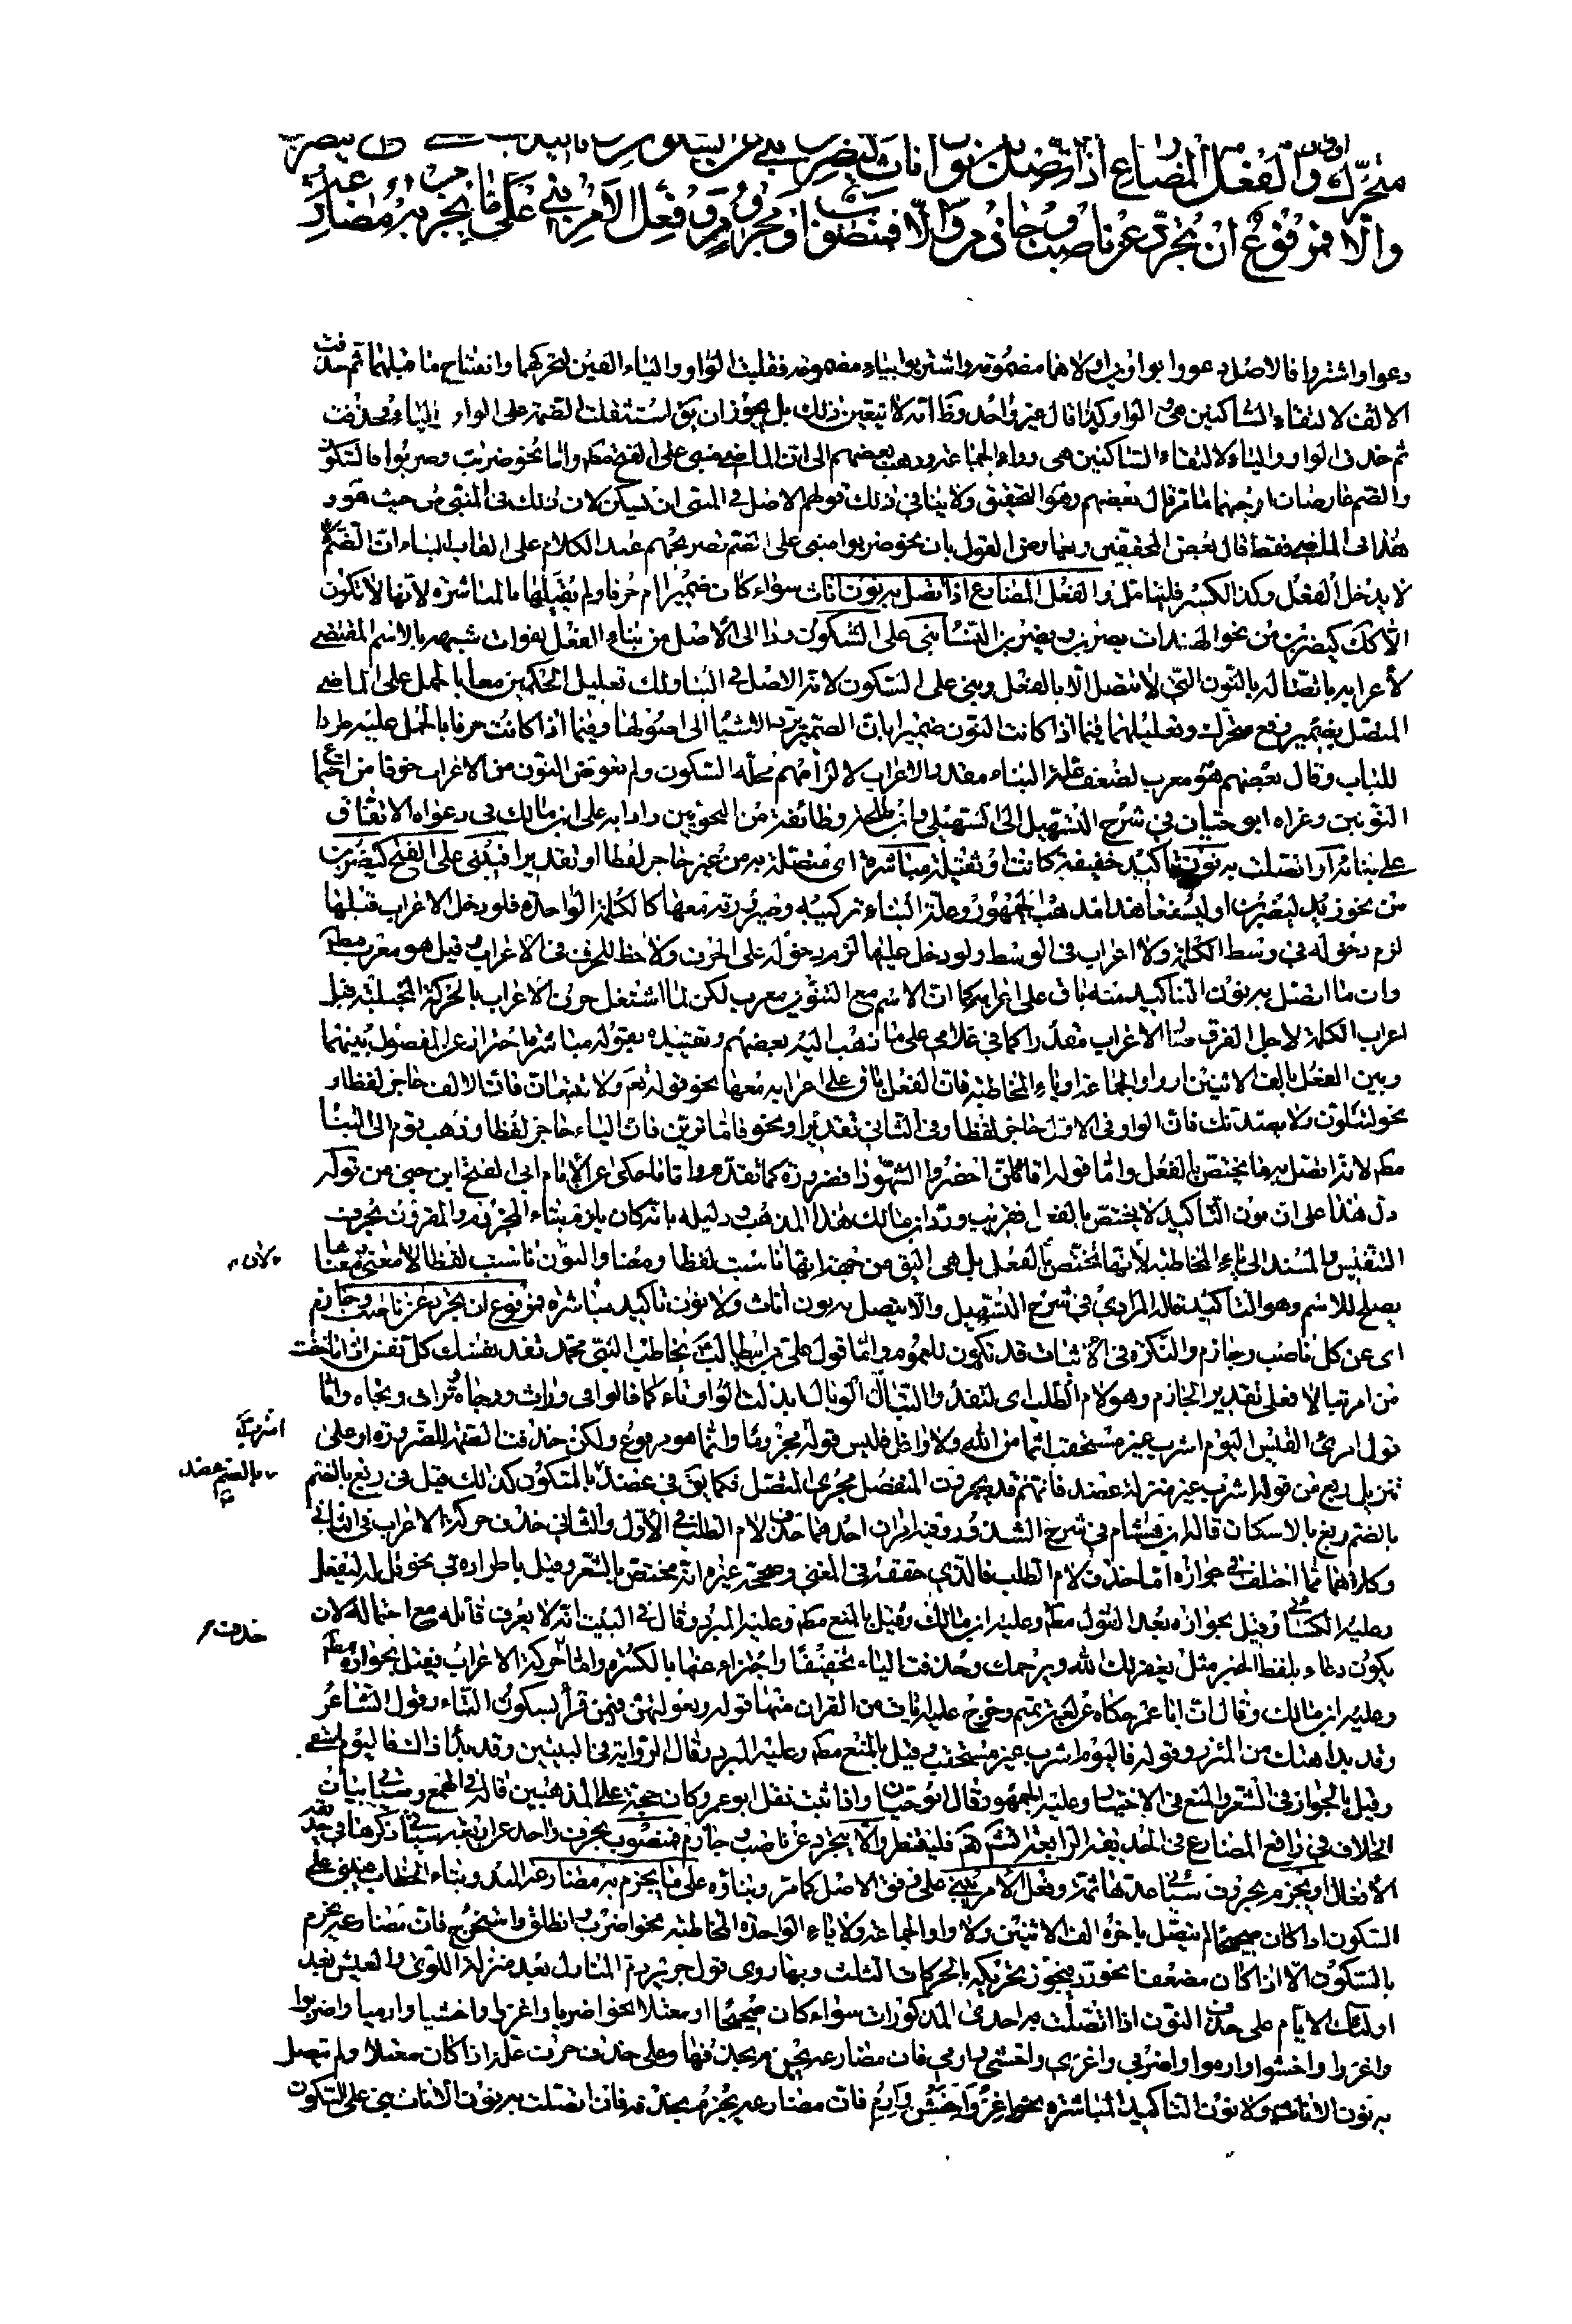 متحرّك والفعل المضارع اذا اتصل به نون اناث كيضربن بني على السكون
والّا فمرفوع ان تجرّد عن ناصب وجازم والّا فمنصوب او مجزوم وفعل الامر يبنى على ما يجزم به مضارعه
دعوا واشتروا فالاصل دعووا بواوين اولاهما مضمومة واشتريوا بياء مضمومة فقلبت الواو والياء الفين لتحركهما وانفتاح ما قبلهما ثم حذفت
الالف لالتقاء الساكنين هي والواو كذا قال غير واحد وظ انه لا يتعين ذلك بل يجوز ان يق استثقلت الضمة على الواو والياء فحذفت
ثم حذف الواو والياء لالتقاء الساكنين هي وواو الجماعة وذهب بعضهم الى ان الماضي مبني على الفتح مطم واما نحو ضربت وضربوا فالسكون
والضم عارضان اوجبهما ما مر قال بعضهم وهو التحقيق ولا ينافي ذلك قولهم الاصل في المبنى ان يسكن لان ذلك في المبنى من حيث هو و
هذا في الماضي فقط قال بعض المحققين وبعارض القول بان نحو ضربوا مبنى على الضم تصريحهم عند الكلام على القاب البناء ان الضم
لا يدخل الفعل وكذا الكسر فليتامل والفعل المضارع اذا اتصل به نون اناث سواء كانت ضميرا ام حرفا ولم يقيدها بالمباشرة لانها لا تكون
الا كك كيضربن من نحو الهندات يضربن ويضربن النساء بني على السكون ردا الى الاصل من بناء الفعل لفوات شبهه بالاسم المقتضي
لاعرابه باتصاله بالنون التي لا تتصل الا بالفعل وبني على السكون لانه الاصل في البناء ولك تعليل الحكمين معا بالحمل على الماضي
المتصل بضمير رفع متحرك وتعليلهما فيما اذا كانت النون ضميرا بان الضمير يرد الاشياء الى اصولها وفيما اذا كانت حرفا بالحمل عليه طردا
للباب وقال بعضهم هو معرب لضعف علة البناء مقدر الاعراب لالزامهم محله السكون ولم يعوض النون من الاعراب خوفا من اجتماع
النونين وعزاه ابو حيان في شرح التسهيل الى السهيلي وابن طلحة وطائفة من النحويين رادا به على ابن مالك في دعواه الاتفاق
على بنائه او اتصلت به نون تاكيد خفيفة كانت او ثقيلة مباشرة اي متصلة به من غير حاجز لفظا او تقديرا فيبنى على الفتح كيضربن
من نحو زيد ليضربن او ليسفعا هذا مذهب الجمهور وعلة البناء تركيبه وصيرورته معها كالكلمة الواحدة فلو دخل الاعراب قبلها
لزم دخوله في وسط الكلمة ولا اعراب في الوسط ولو دخل عليها لزم دخوله على الحرف ولا حظ للحرف في الاعراب وقيل هو معرب مطم
وان ما اتصل به نون التاكيد منه باق على اعرابه كما ان الاسم مع التنوين معرب لكن لما اشتغل حرف الاعراب بالحركة المجتلبة قبل
اعراب الكلمة لاجل الفرق صار الاعراب مقدرا كما في غلامي على ما ذهب اليه بعضهم وتقييده بقوله مباشرة احتراز عن المفصول بينهما
وبين الفعل بالف الاثنين او واو الجماعة او ياء المخاطبة فان الفعل باق على اعرابه معها نحو قوله تع ولا تتبعان فان الالف حاجز لفظا و
نحو لتبلون ولا يصدنك فان الواو في الاول حاجز لفظا وفي الثاني تقديرا ونحو فاما ترين فان الياء حاجز لفظا وذهب قوم الى البناء
مطم لانه اتصل به ما يختص بالفعل واما قوله اقائلن احضروا الشهودا فضرورة كما تقدم واما ما حكى عن الامام ابي الفتح ابن جني من قوله
دل هذا على ان نون التاكيد لا يختص بالفعل فغريب ورد ابن مالك هذا المذهب ودليله بانه كان يلزم بناء المجزوم والمقرون بحرف
التنفيس والمسند الى ياء المخاطبة لانها تختص بالفعل بل هي اليق من جهة انها ناسبت لفظا ومعنا والنون ناسبت لفظا لا معنى
لان
يصلح للاسم وهو التاكيد قاله المرادي في شرح التسهيل والا يتصل به نون اناث ولا نون تاكيد مباشرة فمرفوع ان تجرد عن ناصب وجازم
اي عن كل ناصب وجازم والنكرة في الاثبات قد تكون للعموم واما قول علي بن ابيطالب يخاطب النبي محمد تفد نفسك كل نفس اذا ما خفت
من امر تبالا فعلى تقدير الجازم وهو لام الطلب اي لتفد والتبال الوبال ابدلت الواو تاء كما قالوا في وراث ووجاه تراث وتجاه واما
قول امرئ القيس اليوم اشرب غير مستحقب اثما من الله ولا واغل فليس قوله مجزوما وانما هو مرفوع ولكن حذفت الضمة للضرورة او على
اشرب
تنزيل ربغ من قوله اشرب غير منزلة عضد فانهم قد يجرون المنفصل مجرى المتصل فكما يق في عضد بالسكون كذلك قيل في ربغ بالضم
بالضم عضد
بالضم ربغ بالاسكان قاله ابن هشام في شرح الشذور وفيه امران احدهما حذف لام الطلب في الاول والثاني حذف حركة الاعراب في الثاني
وكلاهما مما اختلف في جوازه اما حذف لام الطلب فالذي حققه في المغني وصححه غيره انه مختص بالشعر وقيل باطراده في نحو قل له ليفعل
وعليه الكسائي وقيل بجوازه بعد القول مطم وعليه ابن مالك وقيل بالمنع مطم وعليه المبرد وقال في البيت انه لا يعرف قائله مع احتماله لان
حذفت
يكون دعاء بلفظ الخبر مثل يغفر لك الله ويرحمك وحذفت الياء تخفيفا واجتزاء عنها بالكسرة واما حركة الاعراب فقيل بجوازه مطم
وعليه ابن مالك وقال ان ابا عمر حكاه عن لغة تميم وخرج عليه ايات من القران منها قوله وبعولتهن فيمن قرأ بسكون التاء وقول الشاعر
وقد بدا هنك من المئزر وقوله فاليوم اشرب غير مستحقب وقيل بالمنع مطم وعليه المبرد وقال الرواية في البيتين وقد بدا ذاك فاليوم اسقى
وقيل بالجواز في الشعر والمنع في الاختيار وعليه الجمهور قال ابو حيان واذا ثبت نقل ابو عمرو كان حجة على المذهبين قاله في الهمع وسياتي بيان
الخلاف في رافع المضارع في الحديقة الرابعة انشم هم فلينتظر والا يتجرد عن ناصب وجازم فمنصوب بحرف واحد من اربعة سياتي ذكرها في حديقة
الافعال او مجزوم بحروف سياتي عدتها ثمة وفعل الامر يبنى على وفق الاصل كما مر وبناؤه على ما يجزم به مضارعه المبدو بتاء الخطاب فيبنى على
السكون اذا كان صحيحا لم يتصل باخره الف الاثنين ولا واو الجماعة ولا ياء الواحدة المخاطبة نحو اضرب وانطلق واستخرج فان مضارعه يجزم
بالسكون الا اذا كان مضعفا نحو رد فيجوز تحريكه بالحركات الثلث وبها روى قول جرير ذم المنازل بعد منزلة اللوى والعيش بعد
اولئك الايام على حذف النون اذا اتصلت به احدى المذكورات سواء كان صحيحا او معتلا نحو اضربا واغزوا واخشيا وارميا واضربوا
واغزوا واخشوا وارموا واضربي واغزي واخشي وارمي فان مضارعه يجزم بحذفها وعلى حذف حرف علة اذا كان معتلا ولم تتصل
به نون الاناث ولا نون التاكيد المباشرة نحو اغز واخش وارم فان مضارعه يجزم بحذفه فان اتصلت به نون الاناث بني على السكون